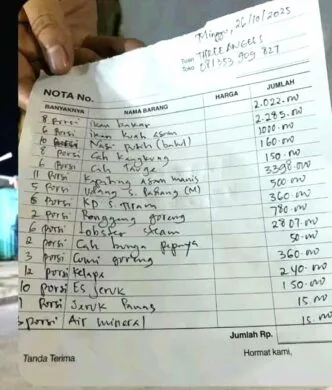 Minggu, 26/10/2025
Tuan THREE ANGELS
Toko 081353 909 827
NOTA No.
BANYAKNYA NAMA BARANG HARGA JUMLAH
8 Porsi Ikan bakar 2.022.000
6 Porsi ikan kuah asam 2.285.000
10 Nasi Putih (bakul) 1000.000
Porsi Cah Kangkung 160.000
6 Porsi Cah Tauge 150.000
11 Porsi Kepiting Asam manis 3398.000
5 Porsi Udang S. Padang (M) 500.000
Porsi KD S. Tiram 360.000
2 Porsi goreng 780.000
6 Porsi lobster steam 2807.000
2 porsi Cah bunga Pepaya 50.000
3 porsi Cumi goreng 360.000
12 porsi Kelapa 240.000
10 porsi Es jeruk 150.000
1 Porsi Jeruk Panas 15.000
porsi Air mineral 15.000
Jumlah Rp.
Tanda Terima Hormat kami,